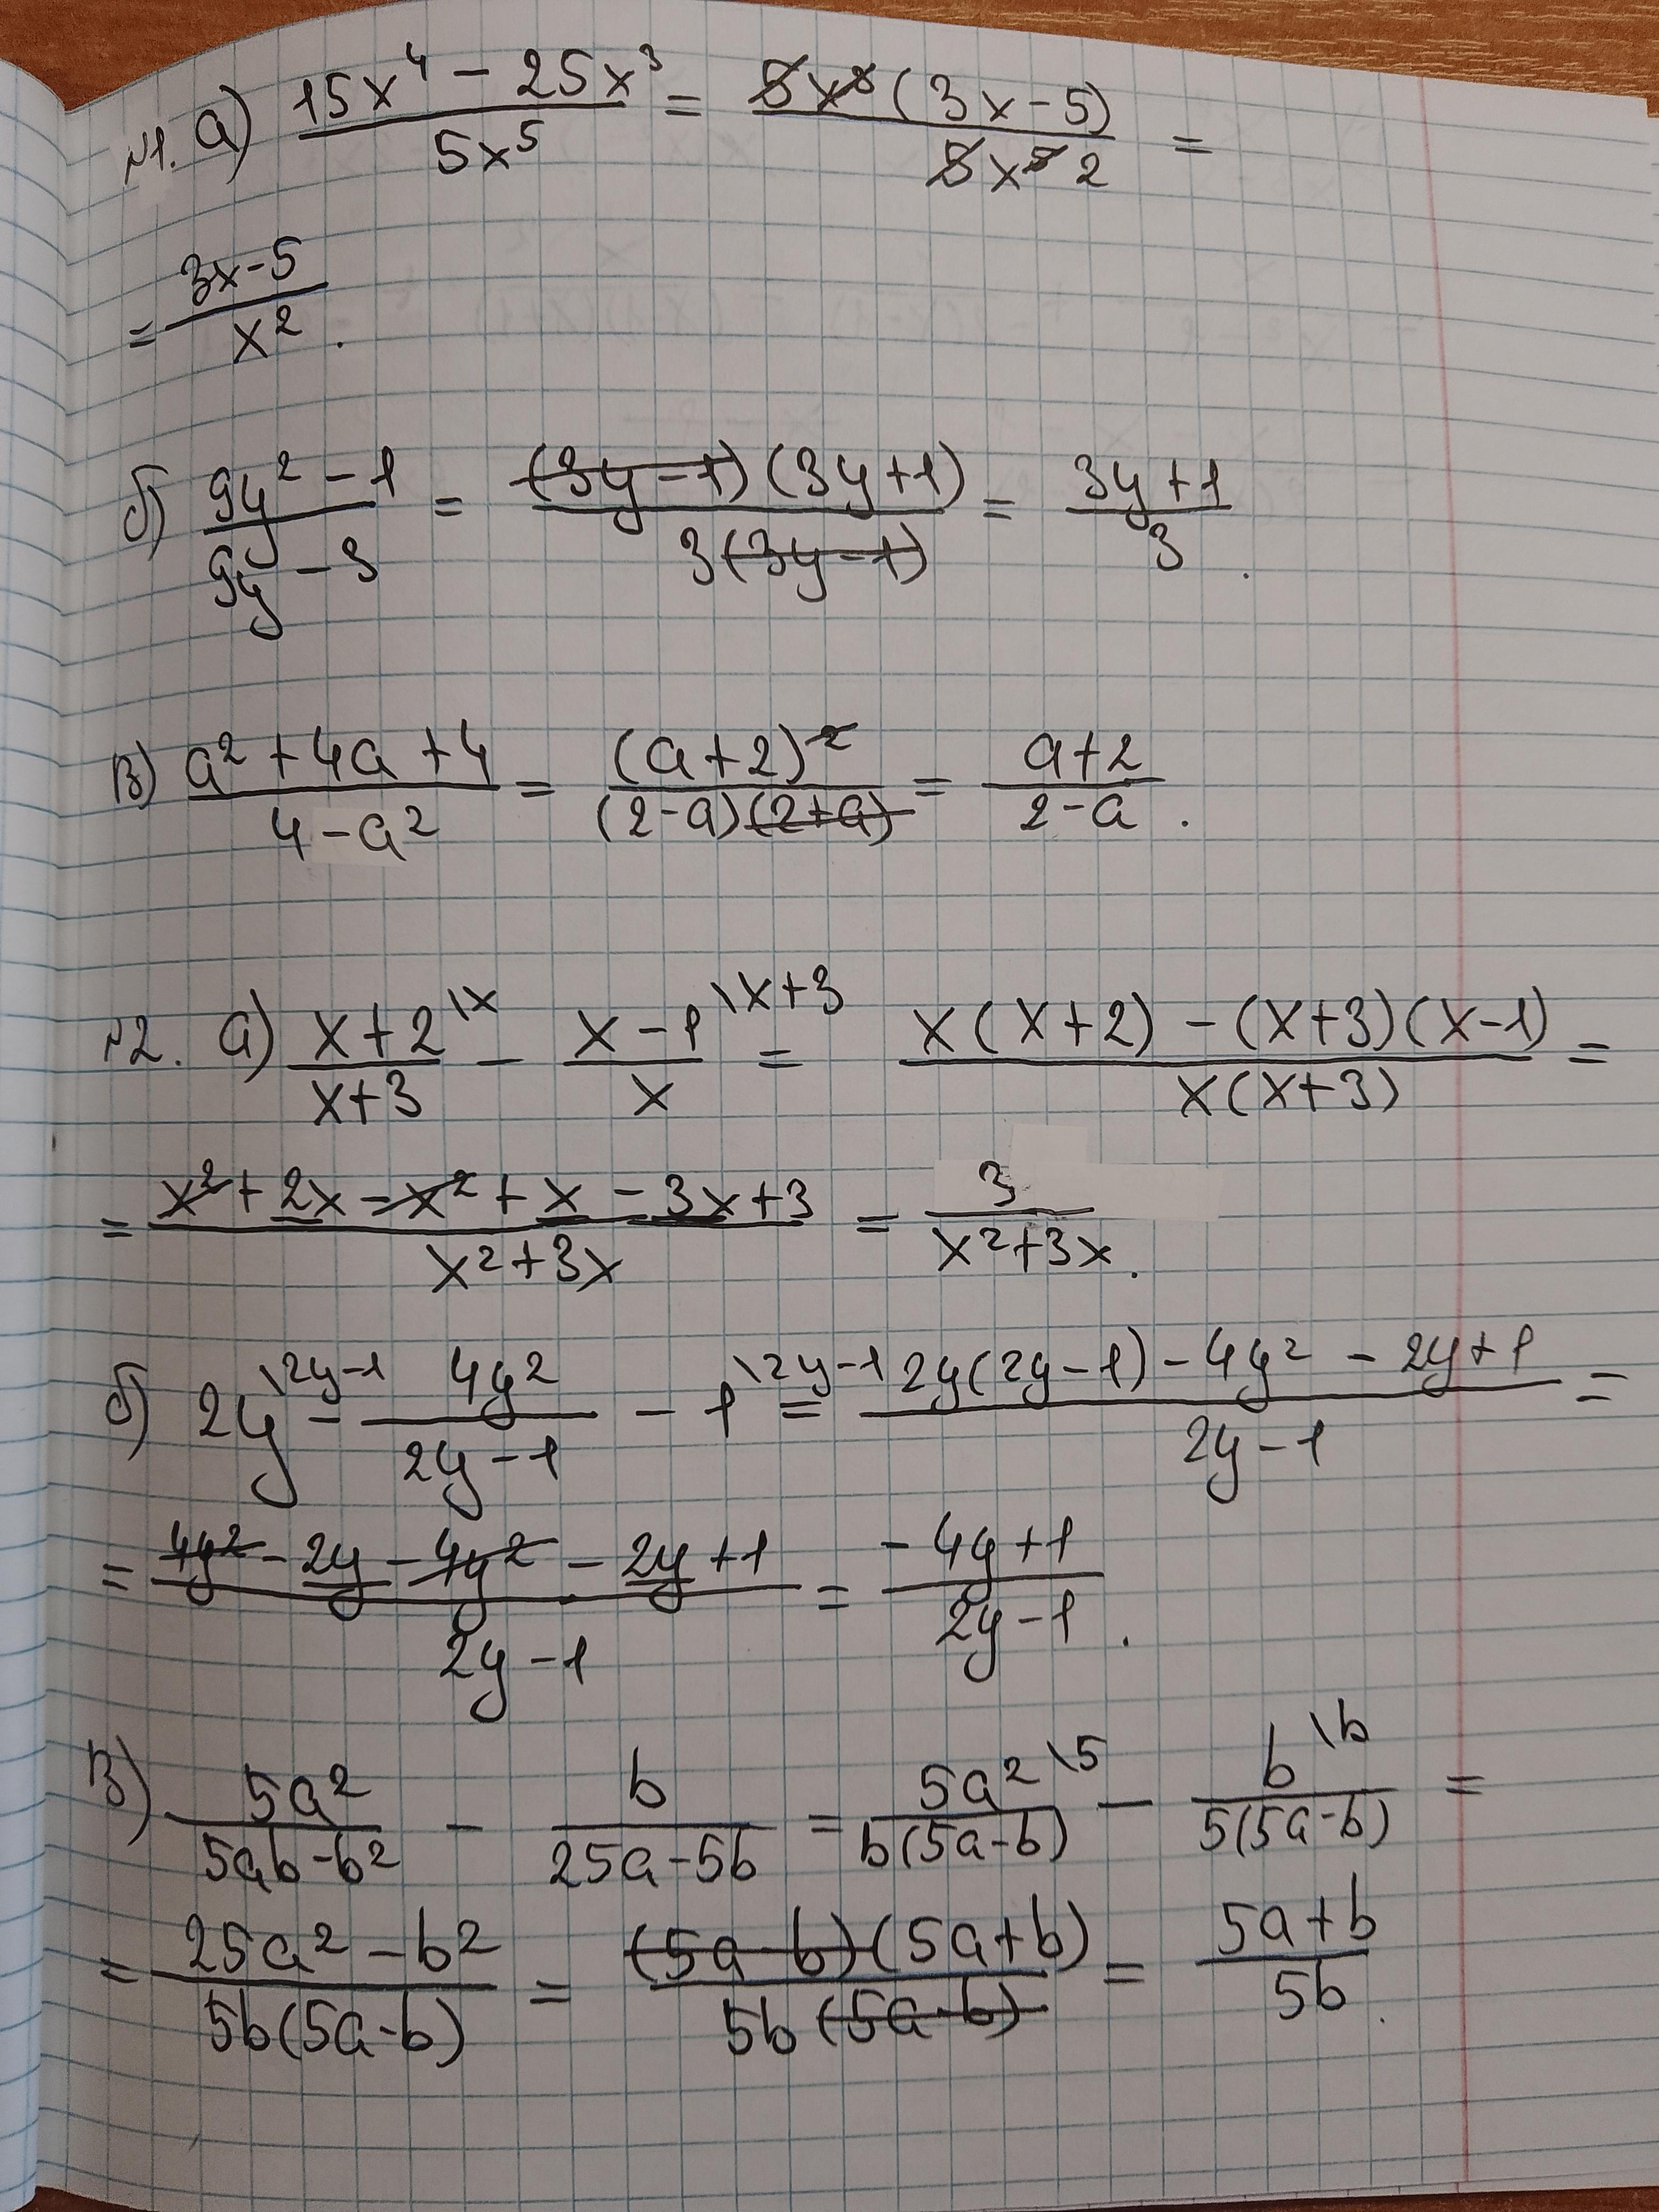 №1. а) (15x⁴ - 25x³)/(5x⁵) = (5x³(3x-5))/(5x⁵ 2) =
= (3x-5)/(x²).
б) (9y² - 1)/(9y - 3) = ((3y-1)(3y+1))/(3(3y-1)) = (3y+1)/3.
в) (a² + 4a + 4)/(4-a²) = (a+2)²/((2-a)(2+a)) = (a+2)/(2-a).
№2. а) (x+2)/(x+3) \x - (x-1)/x \x+3 = (x(x+2) - (x+3)(x-1))/(x(x+3)) =
= (x² + 2x - x² + x - 3x + 3)/(x²+3x) = 3/(x²+3x).
б) 2y \2y-1 - (4y²)/(2y-1) - 1 \2y-1 = (2y(2y-1) - 4y² - 2y+1)/(2y-1) =
= (4y² - 2y - 4y² - 2y + 1)/(2y-1) = (-4y+1)/(2y-1).
в) (5a²)/(5ab-b²) - b/(25a-5b) = (5a²)/(b(5a-b)) \5 - b/(5(5a-b)) \b =
= (25a² - b²)/(5b(5a-b)) = ((5a-b)(5a+b))/(5b(5a-b)) = (5a+b)/(5b).